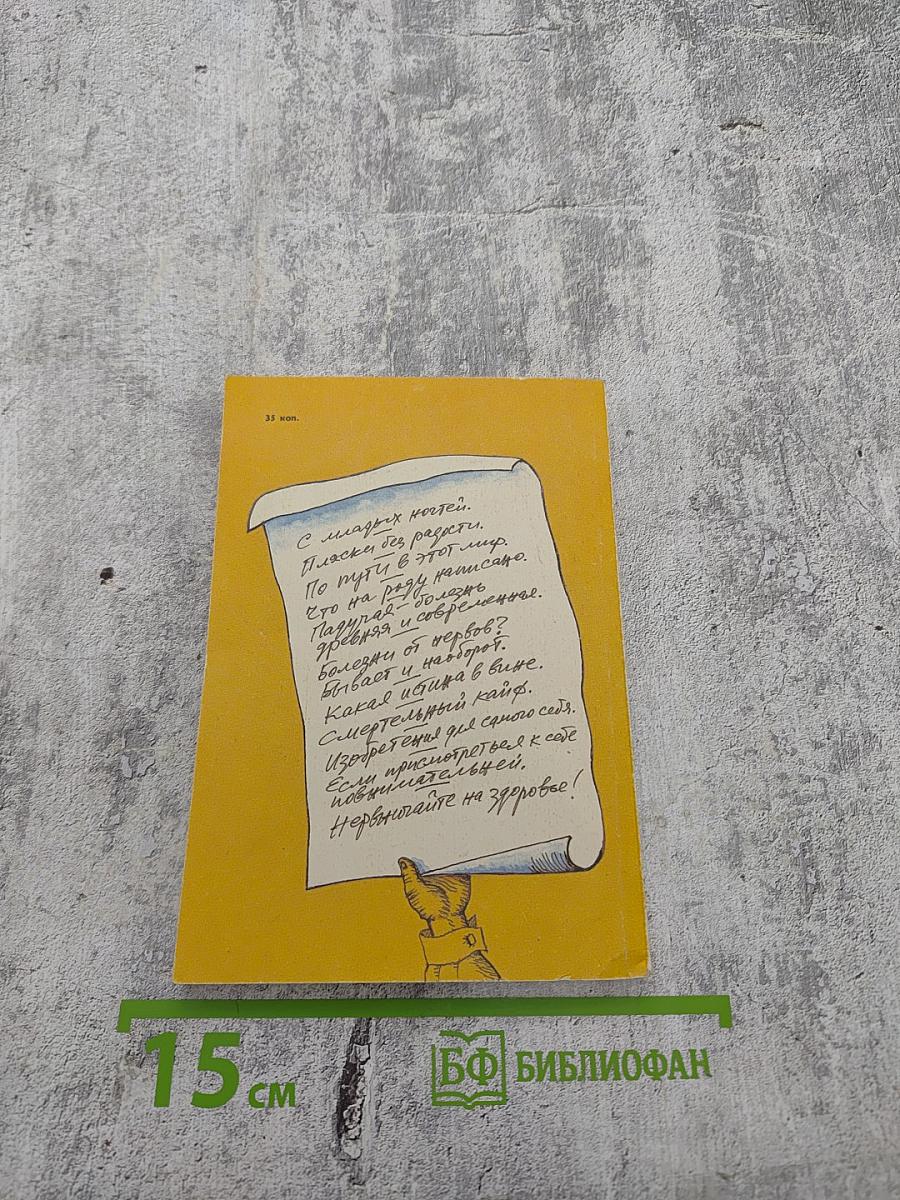 35 коп.
С младых ногтей.
Пляски без радости.
По пути в этот мир.
Что на роду написано.
Падучая – болезнь
древняя и современная.
Болезни от нервов?
Бывает и наоборот.
Какая истина в вине.
Смертельный кайф.
Изобретения для самого себя.
Если присмотреться к себе
повнимательней.
Нервничайте на здоровье!
15 см
БФ БИБЛИОФАН